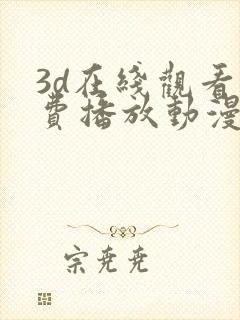 3d在綫觀看
費播放動漫
宗尭尭